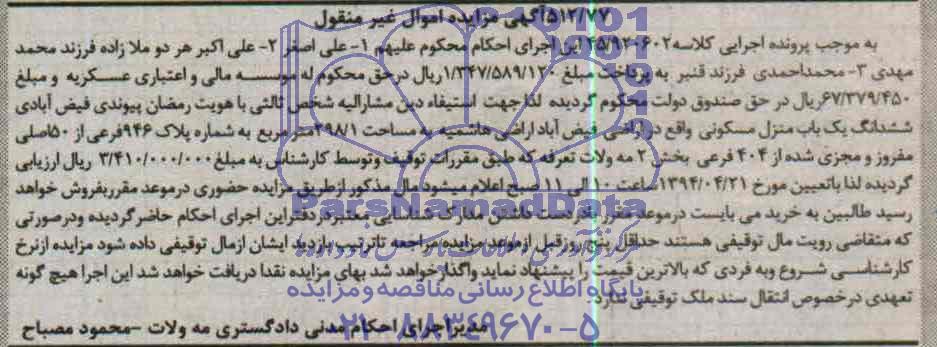 ۵۱۲/۷۷آگهی مزایده اموال غیر منقول
به موجب پرونده اجرایی کلاسه ۴۵/۹۲۰۶۰۲ این اجرای احکام محکوم علیهم ۱- علی اصغر ۲- علی اکبر هر دو ملا زاده فرزند محمد
مهدی ۳- محمداحمدی فرزند قنبر به پرداخت مبلغ ۱/۳۴۷/۵۸۹/۱۲۰ریال درحق محکوم له موسسه مالی و اعتباری عسکریه و مبلغ
۶۷/۳۷۹/۴۵۰ریال در حق صندوق دولت محکوم گردیده لذا جهت استیفاء دین مشارالیه شخص ثالثی با هویت رمضان پیوندی فیض آبادی
ششدانگ یک باب منزل مسکونی واقع در اراضی فیض آباد اراضی هاشمیه به مساحت ۲۹۸/۱مترمربع به شماره پلاک ۹۴۶فرعی از ۵۰اصلی
مفروز و مجزی شده از ۴۰۴ فرعی بخش ۲ مه ولات تعرفه که طبق مقررات توقیف وتوسط کارشناس به مبلغ ۳/۴۱۰/۰۰۰/۰۰۰ ریال ارزیابی
گردیده لذا باتعیین مورخ ۱۳۹۴/۰۴/۲۱ساعت ۱۰الی ۱۱ صبح اعلام میشود مال مذکور ازطریق مزایده حضوری درموعد مقرربفروش خواهد
رسید طالبین به خرید می بایست درموعد مقرر بادردست داشتن مدارک شناسایی معتبردردفتراین اجرای احکام حاضرگردیده ودرصورتی
که متقاضی رویت مال توقیفی هستند حداقل پنج روزقبل ازموعد مزایده مراجعه تاترتیب بازدید ایشان ازمال توقیفی داده شود مزایده ازنرخ
کارشناسی شروع وبه فردی که بالاترین قیمت را پیشنهاد نماید واگذارخواهد شد بهای مزایده نقدا دریافت خواهد شد این اجرا هیچ گونه
تعهدی درخصوص انتقال سند ملک توقیفی ندارد
مدیراجرای احکام مدنی دادگستری مه ولات -محمود مصباح
ParsNamadData
پایگاه اطلاع رسانی مناقصه و مزایده
۰۲۱-۸۸۳۴۹۶۷۰-۵